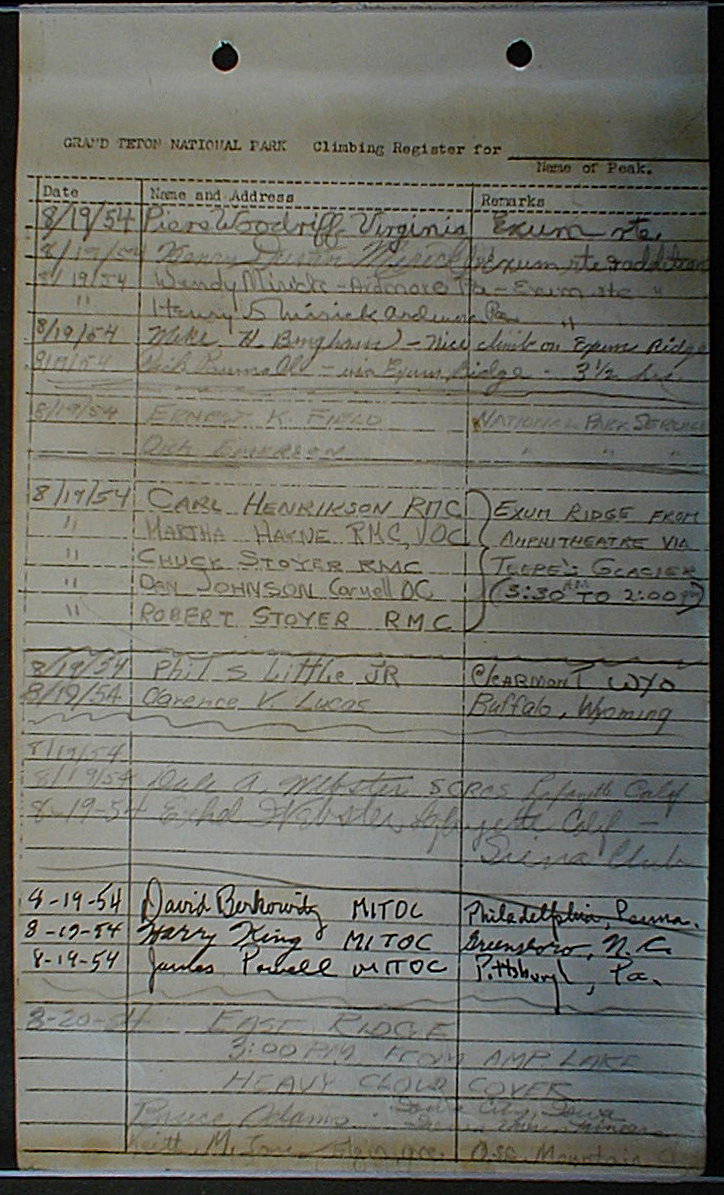 GRAND TETON NATIONAL PARK Climbing Register for
Name of Peak.
Date Name and Address Remarks
8/19/54 Piers Woodriff Virginia Exum rte.
8/19/54 Henry Exum rte
8/19/54 Wendy Mirick - Ardmore Pa - Exum rte "
" Henry S Mirick Ardmore Pa "
8/19/54 Mike H. Bingham - Nice climb on Exum Ridge
8/19/54 - via Exum Ridge - 3 1/2 hrs.
8/19/54 ERNEST K. FIELD NATIONAL PARK SERVICE
DICK EMERSON " " "
8/19/54 CARL HENRIKSON RMC EXUM RIDGE FROM
" MARTHA HAYNE RMC, VOC AMPHITHEATRE VIA
" CHUCK STOYER RMC TEEPE'S GLACIER
" DAN JOHNSON Cornell OC (3:30 AM TO 2:00 PM)
" ROBERT STOYER RMC
8/19/54 Phil S Little JR CLEARMONT WYO
8/19/54 Clarence V. Lucas Buffalo, Wyoming
8/19/54
8/19/54 Dale A. Webster SCRCS Lafayette Calif
8-19-54 Webster Lafayette Calif -
Sierra Club
8-19-54 David Berkowitz MITOC Philadelphia, Penna.
8-19-54 Harry King MITOC Greensboro, N.C.
8-19-54 James Powell MITOC Pittsburgh, Pa.
8-20-54 EAST RIDGE
3:00 PM FROM AMP. LAKE
HEAVY CLOUD COVER
Bruce Adams Iowa City, Iowa
Iowa Mountaineers
Keith M.